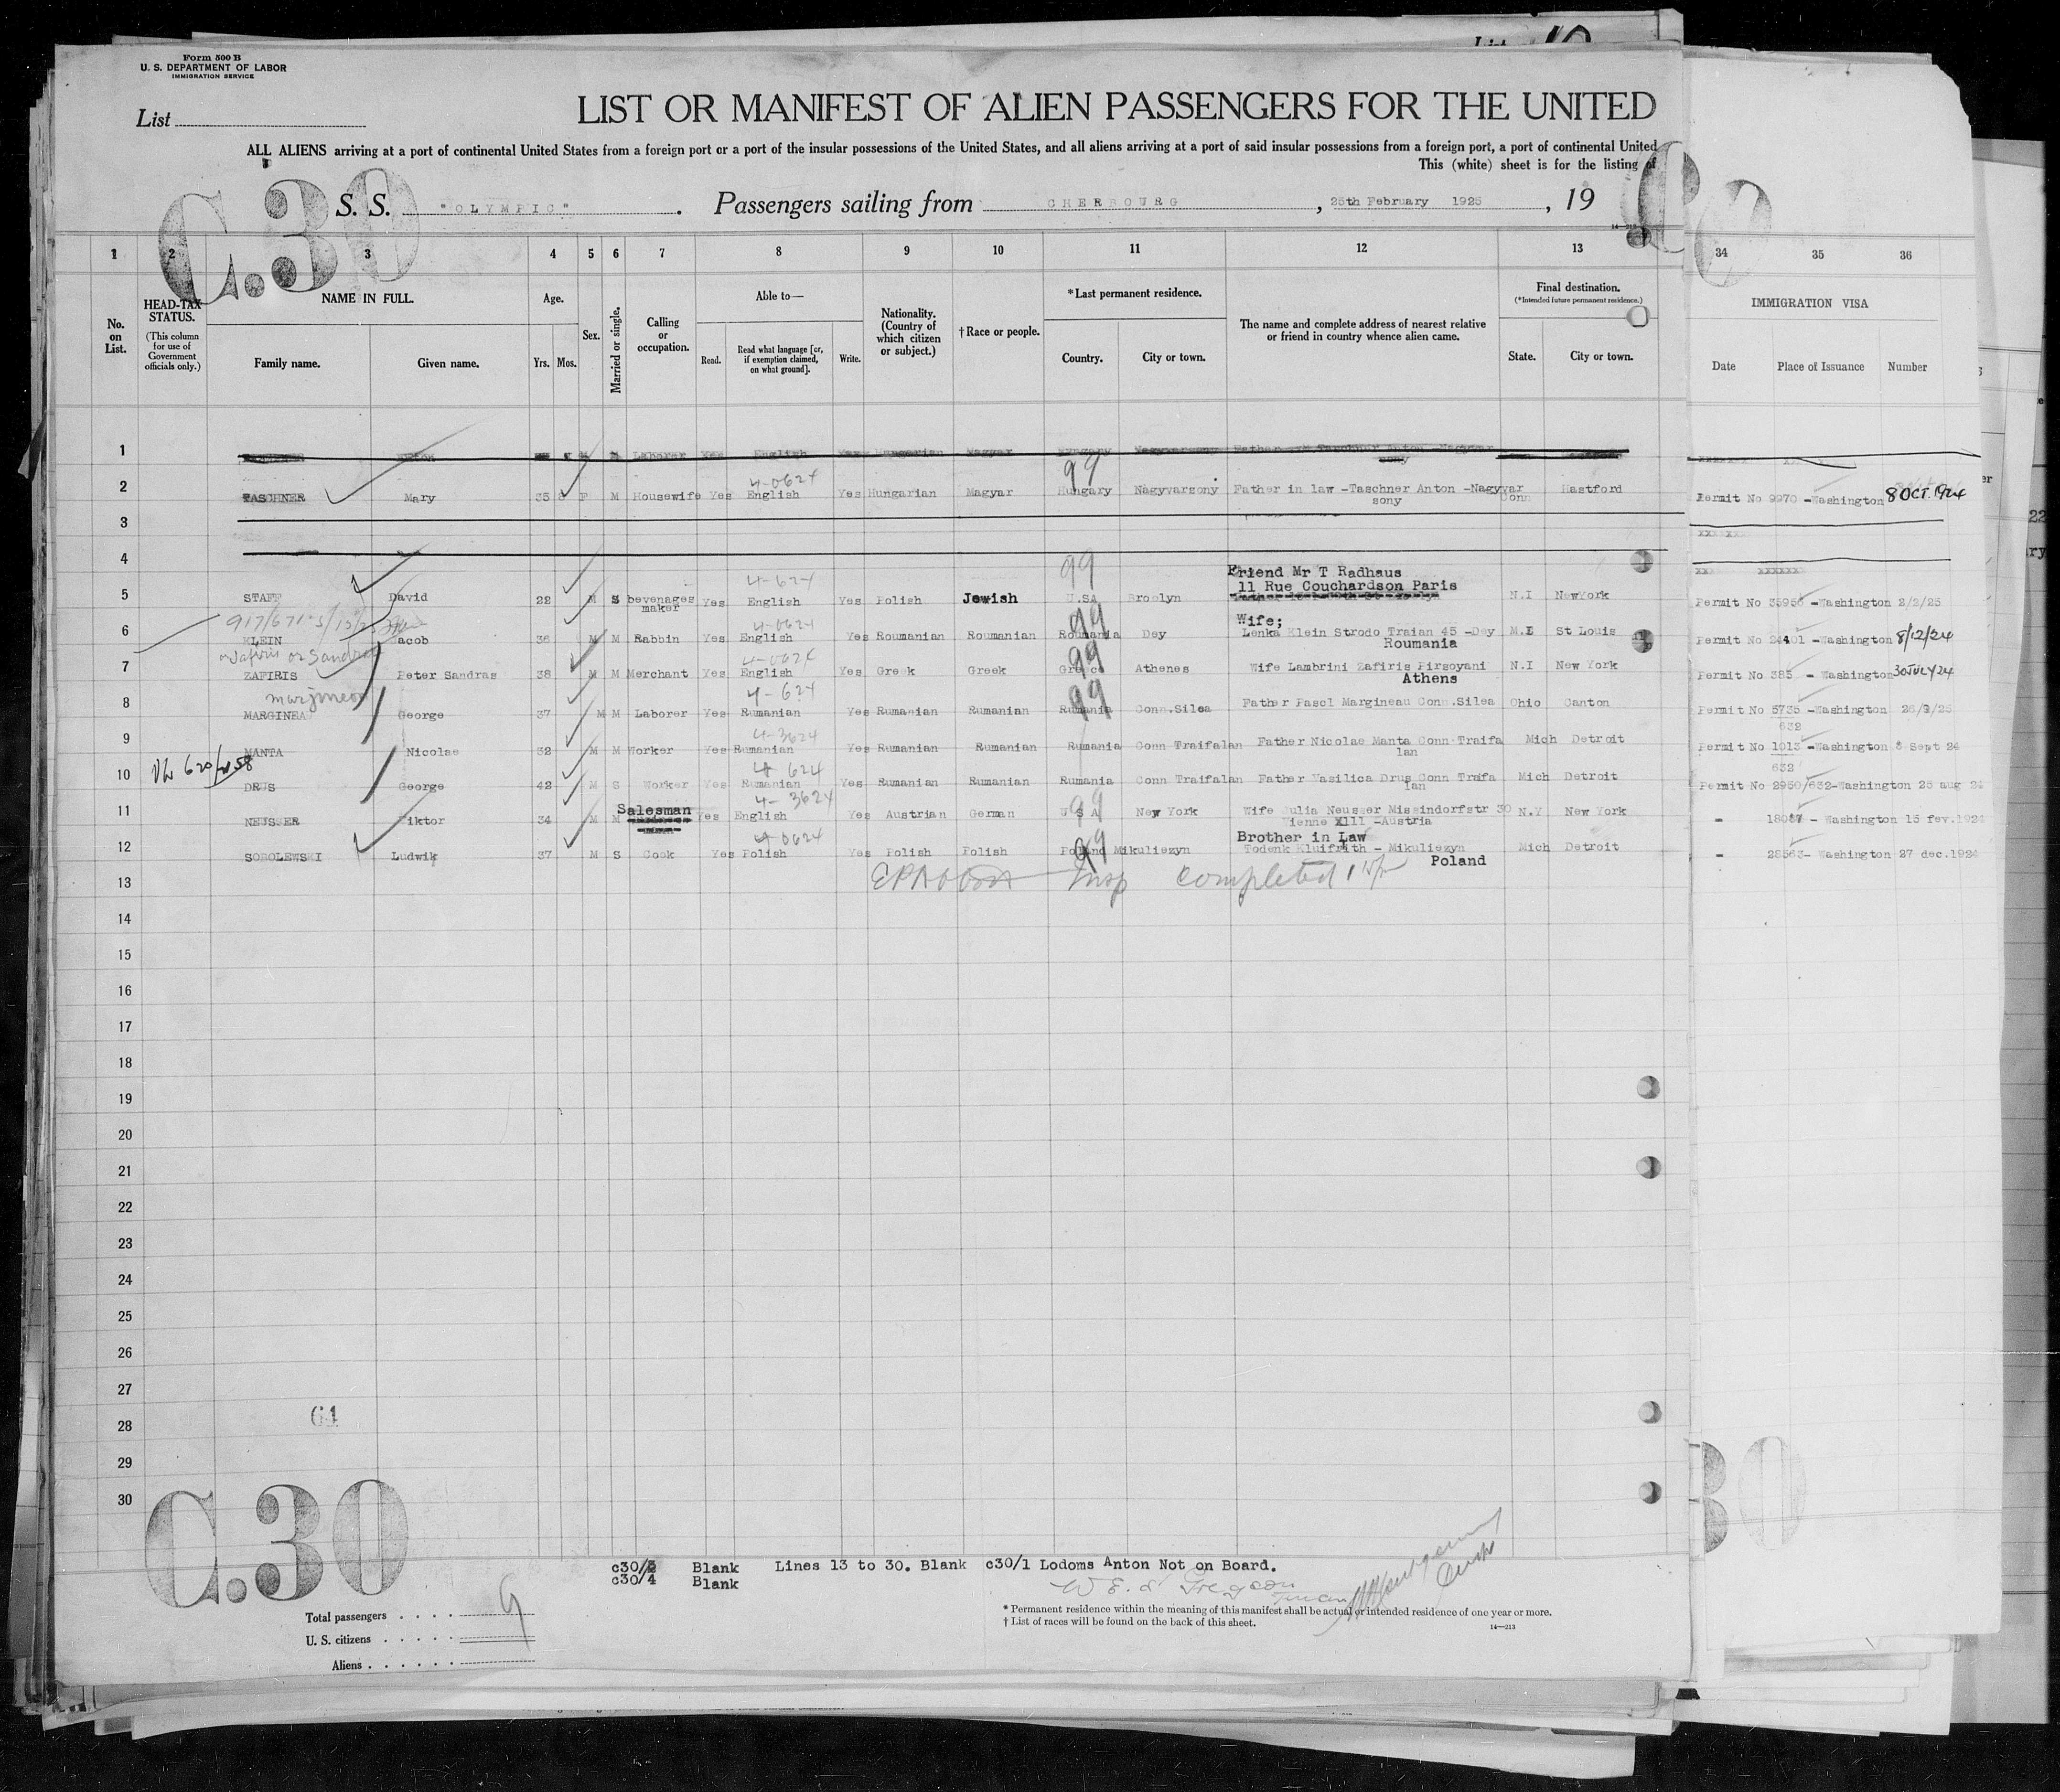 Form 500 B
U. S. DEPARTMENT OF LABOR
IMMIGRATION SERVICE
List
LIST OR MANIFEST OF ALIEN PASSENGERS FOR THE UNITED
ALL ALIENS arriving at a port of continental United States from a foreign port or a port of the insular possessions of the United States, and all aliens arriving at a port of said insular possessions from a foreign port, a port of continental United
This (white) sheet is for the listing of
C.30
S. S. "OLYMPIC" . Passengers sailing from CHERBOURG , 25th February 1925 , 19
14—213
1 2 3 4 5 6 7 8 9 10 11 12 13 34 35 36
No. on List.
HEAD-TAX STATUS.
(This column for use of Government officials only.)
NAME IN FULL.
Family name. Given name.
Age.
Yrs. Mos.
Sex.
Married or single.
Calling or occupation.
Able to—
Read. Read what language [or, if exemption claimed, on what ground]. Write.
Nationality. (Country of which citizen or subject.)
† Race or people.
* Last permanent residence.
Country. City or town.
The name and complete address of nearest relative or friend in country whence alien came.
Final destination.
(*Intended future permanent residence.)
State. City or town.
IMMIGRATION VISA
Date Place of Issuance Number
1 Laborer Yes English Yes Hungarian Magyar Hungary Nagyvarsony
99
4-0624
2 TASCHNER Mary 35 F M Housewife Yes English Yes Hungarian Magyar Hungary Nagyvarsony Father in law -Taschner Anton -Nagyvar Conn Hastford Permit No 9970 -Washington 8 OCT. 1924
sony
3
4
99
4-624
Friend Mr T Radhaus
11 Rue Couchardson Paris
5 STAFF David 22 M S bevenages maker Yes English Yes Polish Jewish U.SA Broolyn N.I NewYork Permit No 35956 -Washington 2/2/25
4-0624 99
Wife;
6 KLEIN Jacob 36 M M Rabbin Yes English Yes Roumanian Roumanian Roumania Dey Lenka Klein Strodo Traian 45 -Dey M.I St Louis Permit No 24401 -Washington 8/12/24
Roumania
or Zafiris or Sandras 4-0624 99
7 ZAFIRIS Peter Sandras 38 M M Merchant Yes English Yes Greek Greek Greece Athenes Wife Lambrini Zafiris Pirsoyani N.I New York Permit No 385 - Washington 30 JULY 24
Athens
marjineon 4-624 99
8 MARGINEA George 37 M M Laborer Yes Rumanian Yes Rumanian Rumanian Rumania Conn.Silea Father Pascl Margineau Conn.Silea Ohio Canton Permit No 5735 -Washington
632
4-3624
9 MANTA Nicolae 32 M M Worker Yes Rumanian Yes Rumanian Rumanian Rumania Conn Traifalan Father Nicolae Manta Conn Traifa Mich Detroit Permit No 1013 -Washington 8 Sept 24
lan 632
4 624
10 DRUS George 42 M S Worker Yes Rumanian Yes Rumanian Rumanian Rumania Conn Traifalan Father Vasilica Drus Conn Trafa Mich Detroit Permit No 2950/632-Washington 25 aug 24
lan
4-3624 99
11 NEUSSER Viktor 34 M M Salesman Yes English Yes Austrian German U S A New York Wife Julia Neusser Missindorfstr 30 N.Y New York - 18087 - Washington 15 fev.1924
Vienne XIII -Austria
4-0624 99
Brother in Law
12 SOBOLEWSKI Ludwik 37 M S Cook Yes Polish Yes Polish Polish Poland Mikuliezyn Todenk Kluifrith - Mikuliezyn Mich Detroit - 28563- Washington 27 dec.1924
Poland
13 Insp completed
14
15
16
17
18
19
20
21
22
23
24
25
26
27
28
29
30
61
C.30
c30/3 Blank Lines 13 to 30. Blank c30/1 Lodoms Anton Not on Board.
c30/4 Blank
Total passengers . . . . 9
U. S. citizens . . . . .
Aliens . . . . . .
* Permanent residence within the meaning of this manifest shall be actual or intended residence of one year or more.
† List of races will be found on the back of this sheet.
14—213